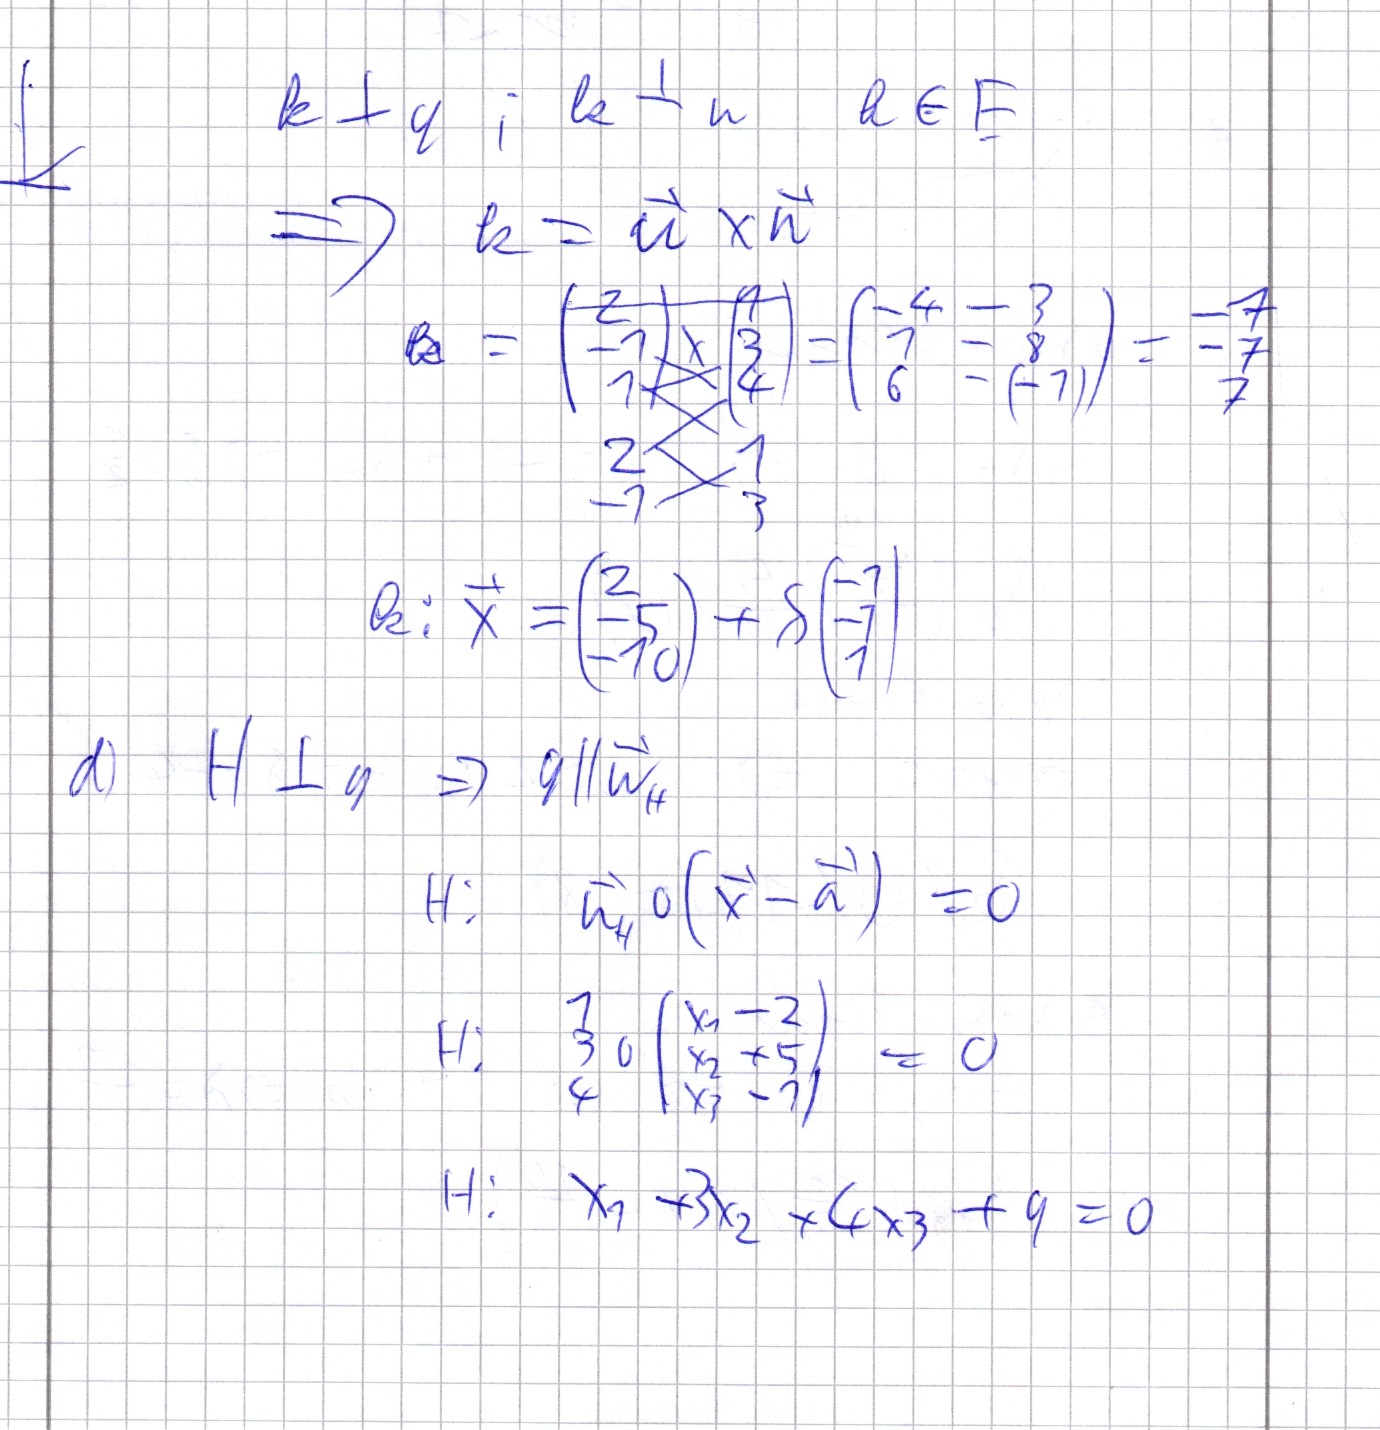 k ⊥ g ; k ⊥ n k ∈ E
⇒ k = u⃗ × n⃗
k = (2 -1 1) × (1 3 4) = (-4 - 3 1 - 8 6 - (-1)) = -7 -7 7
2 1
-1 3
k: x⃗ = (2 -5 -10) + δ (-1 -1 1)
d) H ⊥ g ⇒ g || n⃗_H
H: n⃗_H ∘ (x⃗ - a⃗) = 0
H: 1 3 4 ∘ (x₁ - 2 x₂ + 5 x₃ - 1) = 0
H: x₁ + 3x₂ + 4x₃ + 9 = 0